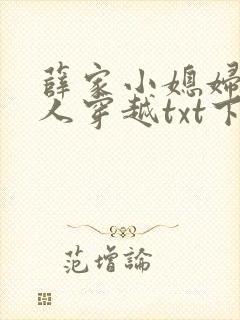 薛家小媳妇
人穿越txt下
范增論